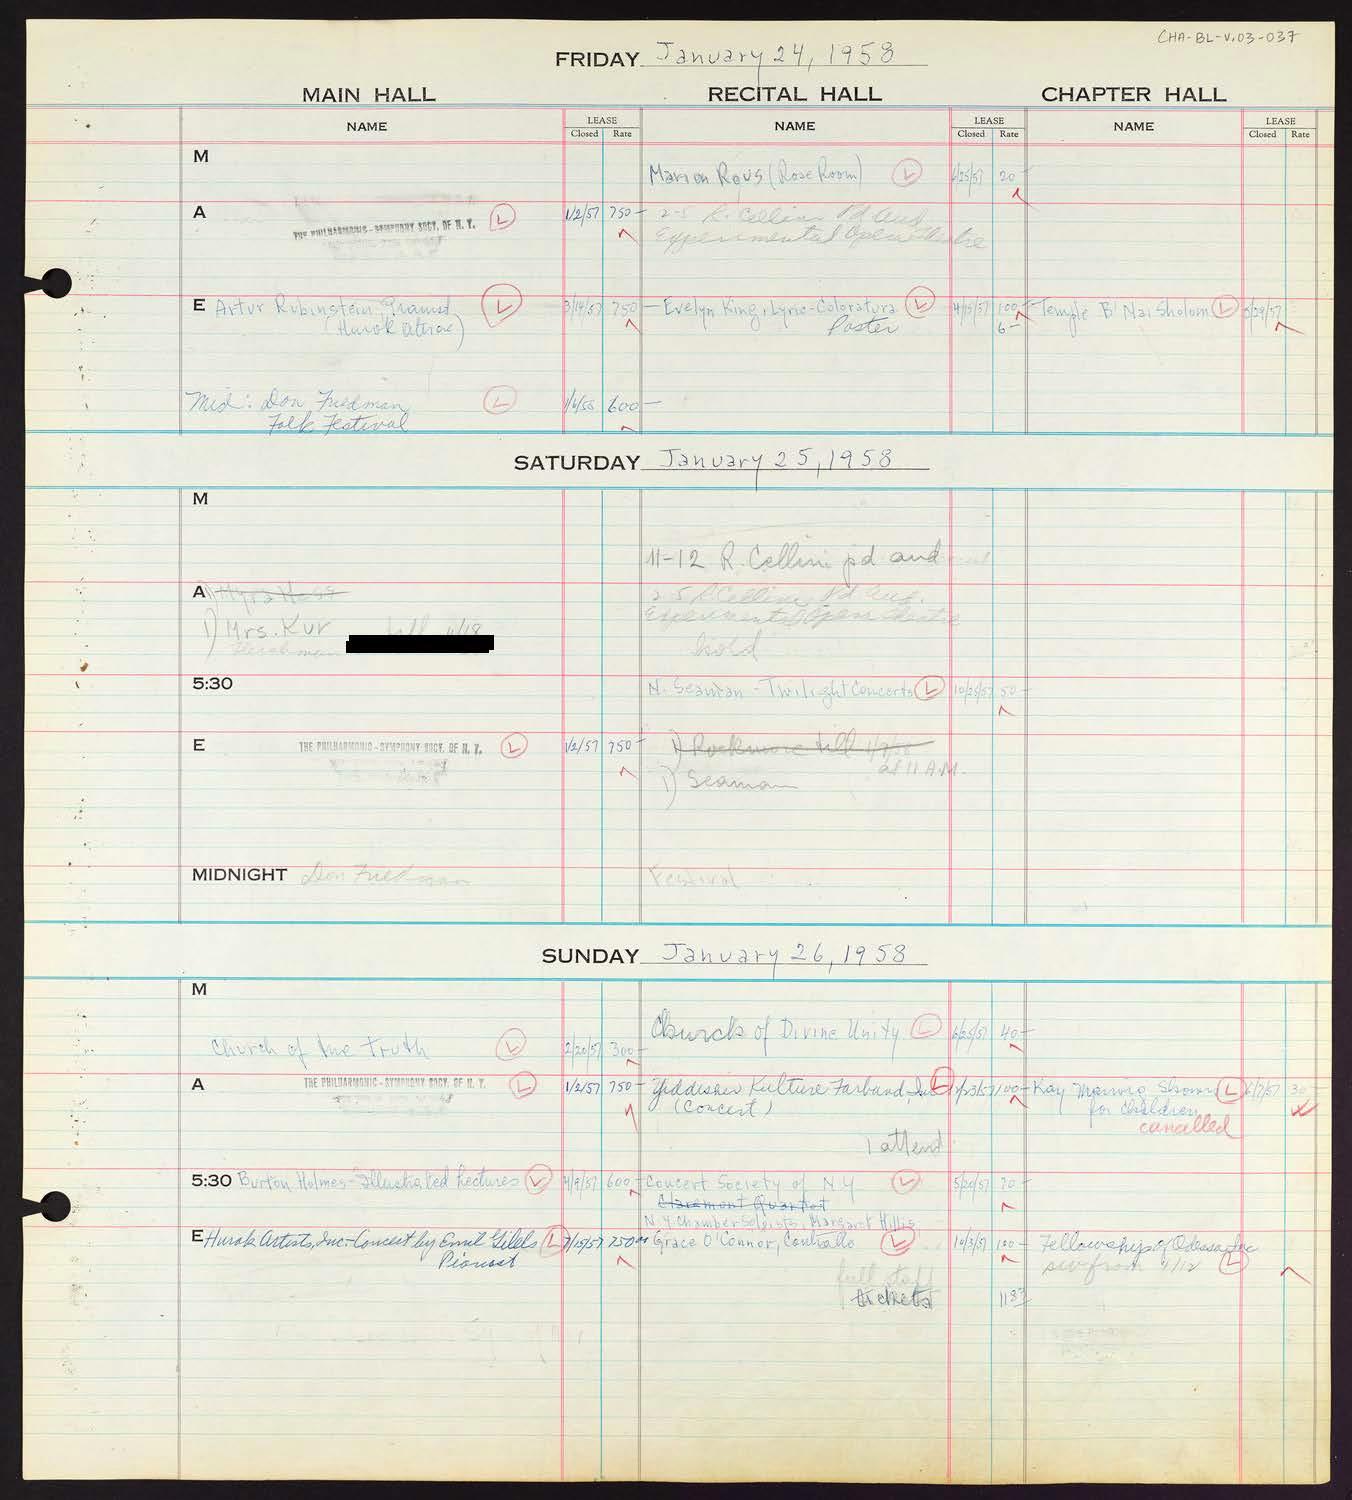 CHA-BL-V.03-037
FRIDAY January 24, 1958
MAIN HALL RECITAL HALL CHAPTER HALL
NAME LEASE Closed Rate NAME LEASE Closed Rate NAME LEASE Closed Rate
M
Marion Rous (Rose Room) L 6/25/57 20-
A THE PHILHARMONIC-SYMPHONY SOCY. OF N. Y. L 1/2/57 750-
2-5 R. Cellini Pd Aud
Experimental Opera Theatre
E Artur Rubinstein, Pianist L 3/14/57 750- Evelyn King, Lyric-Coloratura L 4/15/57 100- Temple B'Nai Sholom L 5/29/57
(Hurok Attrac) Poster 6-
Mid: Don Friedman L 600-
Folk Festival
SATURDAY January 25, 1958
M
11-12 R. Cellini pd aud
A 1) Myra Hess 2-5 R Cellini Pd Aud.
Experimental Opera Theatre
1) Mrs. Kur till 11/18
hold
5:30 N. Seaman - Twilight Concerts L 10/25/57 50-
E THE PHILHARMONIC-SYMPHONY SOCY. OF N. Y. L 1/2/57 750- 1) Rockmore till 1/7/58
at 11 A.M.
1) Seaman
MIDNIGHT Don Friedman Festival
SUNDAY January 26, 1958
M
Church of Divine Unity L 6/25/57 40-
Church of the Truth L 2/20/57 300-
A THE PHILHARMONIC-SYMPHONY SOCY. OF N. Y. L 1/2/57 750- Yiddisher Kulture Farband, Inc L 100- Kay Mannis Shows L 6/7/57 30-
(Concert) for Children
cancelled
1 attend
5:30 Burton Holmes-Illustrated Lectures L 4/9/57 600- Concert Society of N Y L 5/20/57 70-
Claremont Quartet
N.Y. Chamber Soloists, Margaret Hillis
E Hurok Artists, Inc-Concert by Emil Gilels L 7/15/57 750- Grace O'Connor, Contralto L 10/3/57 100- Fellowship of Odessa Inc
Pianist sw from 1/12 L
full staff
tickets 11 87